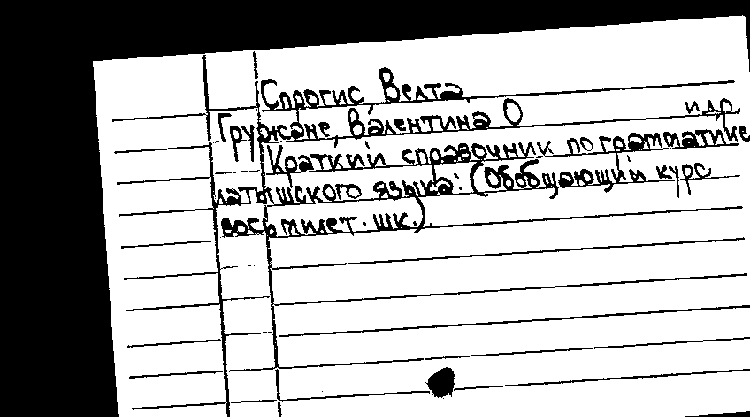 Спрогис, Велта,
Гружане, Валентина О и др
Краткий справочник по грамматике
латышского языка: (Обобщающий курс
восьмилет. шк.).